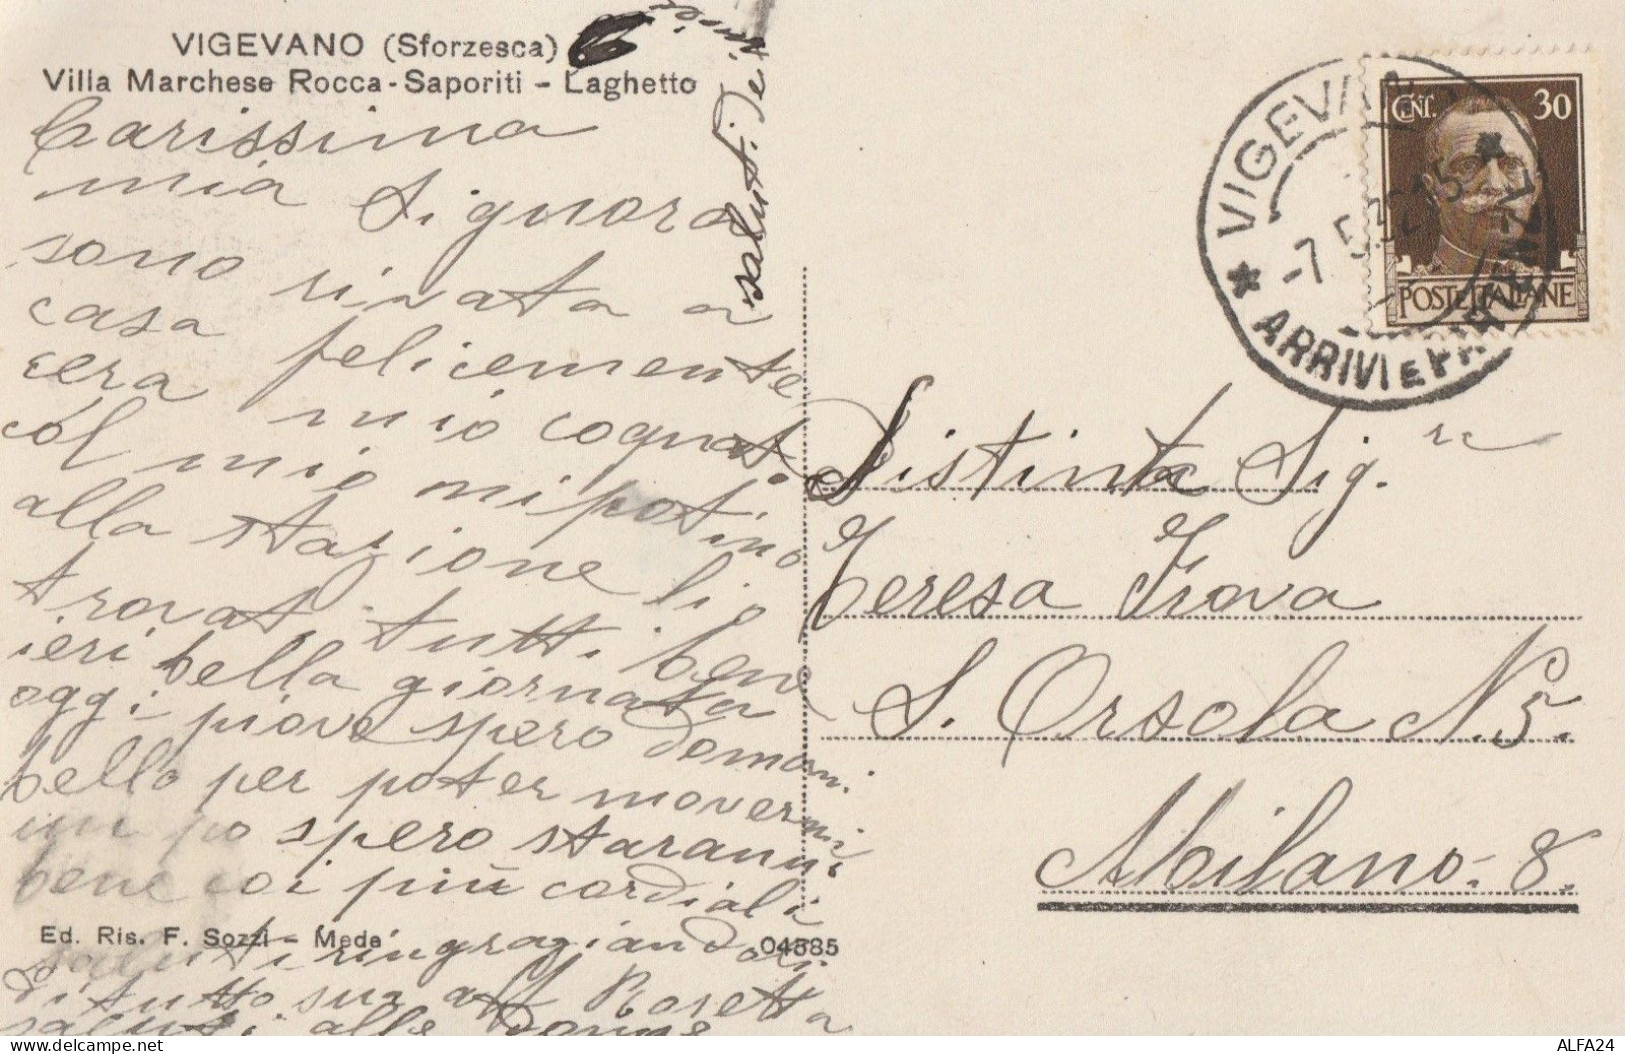 VIGEVANO (Sforzesca)
Villa Marchese Rocca-Saporiti - Laghetto
Carissima
mia Signora
sono rivata a
casa felicemente
cera mio cognato
col mio nipotino
alla stazione lio
trovati tutti bene
ieri bella giornata
oggi piove spero domani
bello per poter movermi
un po spero staranno
bene coi più cordiali
saluti ringraziandoti
di tutto sua aff Rosetta
saluti alle
saluti dei miei
Ed. Ris. F. Sozzi - Meda
04585
CENT. 30
POSTE ITALIANE
VIGEVANO
ARRIVI E PARTENZE
-7.5.32.15
Distinta Sig.ra
Teresa Trova
S. Orsola N. 5.
Milano. 8.
delcampe.net
ALFA24